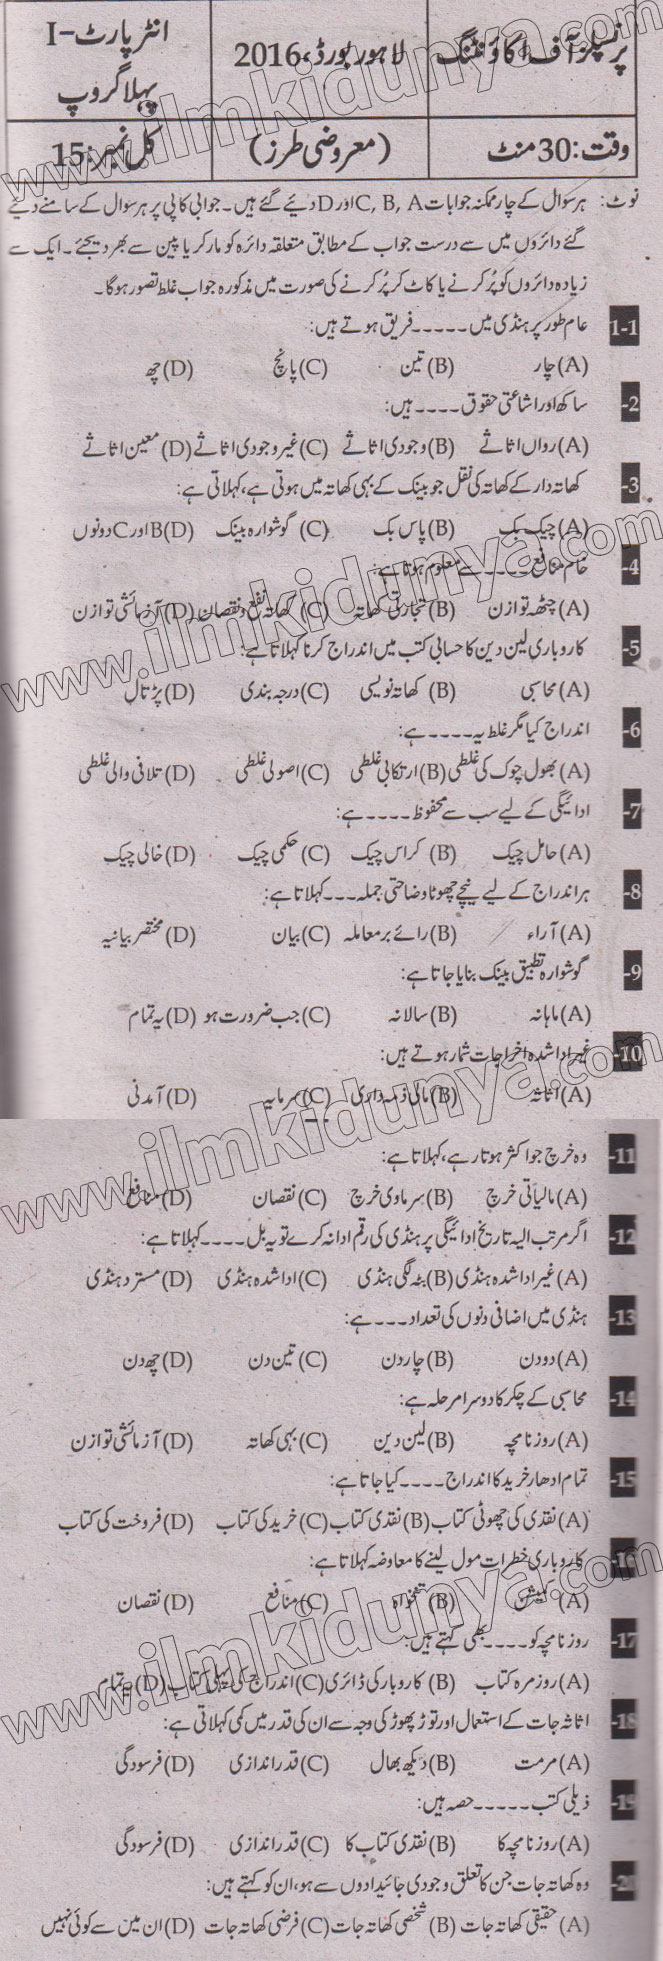 پرنسپلز آف اکاؤنٹنگ
لاہور بورڈ، 2016
انٹر پارٹ-I
پہلا گروپ
وقت: 30 منٹ
(معروضی طرز)
کل نمبر: 15
نوٹ: ہر سوال کے چار ممکنہ جوابات A ,B ,C اور D دیئے گئے ہیں۔ جوابی کاپی پر ہر سوال کے سامنے دیئے
گئے دائروں میں سے درست جواب کے مطابق متعلقہ دائرہ کو مارکر یا پین سے بھر دیجئے۔ ایک سے
زیادہ دائروں کو پُر کرنے یا کاٹ کر پُر کرنے کی صورت میں مذکورہ جواب غلط تصور ہوگا۔
1-1 عام طور پر ہنڈی میں ۔۔۔۔۔ فریق ہوتے ہیں:
(A) چار (B) تین (C) پانچ (D) چھ
2- ساکھ اور اشاعتی حقوق ۔۔۔۔ ہیں:
(A) رواں اثاثے (B) وجودی اثاثے (C) غیر وجودی اثاثے (D) معین اثاثے
3- کھاتہ دار کے کھاتہ کی نقل جو بینک کے بہی کھاتہ میں ہوتی ہے، کہلاتی ہے:
(A) چیک بک (B) پاس بک (C) گوشوارہ بینک (D) B اور C دونوں
4- خام منافع ۔۔۔۔۔ سے معلوم ہوتا ہے:
(A) چٹھہ توازن (B) تجارتی کھاتہ (C) کھاتہ نفع و نقصان (D) آزمائشی توازن
5- کاروباری لین دین کا حسابی کتب میں اندراج کرنا کہلاتا ہے:
(A) محاسبی (B) کھاتہ نویسی (C) درجہ بندی (D) پڑتال
6- اندراج کیا مگر غلط یہ ۔۔۔۔ ہے:
(A) بھول چوک کی غلطی (B) ارتکابی غلطی (C) اصولی غلطی (D) تلافی والی غلطی
7- ادائیگی کے لیے سب سے محفوظ ۔۔۔۔ ہے:
(A) حامل چیک (B) کراس چیک (C) حکمی چیک (D) خالی چیک
8- ہر اندراج کے لیے نیچے چھوٹا وضاحتی جملہ ۔۔۔ کہلاتا ہے:
(A) آراء (B) رائے بر معاملہ (C) بیان (D) مختصر بیانیہ
9- گوشوارہ تطبیق بینک بنایا جاتا ہے:
(A) ماہانہ (B) سالانہ (C) جب ضرورت ہو (D) یہ تمام
10- غیر ادا شدہ اخراجات شمار ہوتے ہیں:
(A) اثاثہ (B) مالی ذمہ داری (C) سرمایہ (D) آمدنی
11- وہ خرچ جو اکثر ہوتا رہے، کہلاتا ہے:
(A) مالیاتی خرچ (B) سرماوی خرچ (C) نقصان (D) منافع
12- اگر مرتب الیہ تاریخ ادائیگی پر ہنڈی کی رقم ادا نہ کرے تو یہ بل ۔۔۔۔ کہلاتا ہے:
(A) غیر ادا شدہ ہنڈی (B) بٹہ لگی ہنڈی (C) ادا شدہ ہنڈی (D) مسترد ہنڈی
13- ہنڈی میں اضافی دنوں کی تعداد ۔۔۔ ہے:
(A) دو دن (B) چار دن (C) تین دن (D) چھ دن
14- محاسبی کے چکر کا دوسرا مرحلہ ہے:
(A) روزنامچہ (B) لین دین (C) بہی کھاتہ (D) آزمائشی توازن
15- تمام ادھار خرید کا اندراج ۔۔۔۔ کیا جاتا ہے:
(A) نقدی کی چھوٹی کتاب (B) نقدی کتاب (C) خرید کی کتاب (D) فروخت کی کتاب
16- کاروباری خطرات مول لینے کا معاوضہ کہلاتا ہے:
(A) کمیشن (B) تنخواہ (C) منافع (D) نقصان
17- روزنامچہ کو ۔۔۔۔ بھی کہتے ہیں:
(A) روزمرہ کتاب (B) کاروبار کی ڈائری (C) اندراج کی پہلی کتاب (D) یہ تمام
18- اثاثہ جات کے استعمال اور توڑ پھوڑ کی وجہ سے ان کی قدر میں کمی کہلاتی ہے:
(A) مرمت (B) دیکھ بھال (C) قدر اندازی (D) فرسودگی
19- ذیلی کتب ۔۔۔۔۔ حصہ ہیں:
(A) روزنامچہ کا (B) نقدی کتاب کا (C) قدر اندازی (D) فرسودگی
20- وہ کھاتہ جات جن کا تعلق وجودی جائیدادوں سے ہو، ان کو کہتے ہیں:
(A) حقیقی کھاتہ جات (B) شخصی کھاتہ جات (C) فرضی کھاتہ جات (D) ان میں سے کوئی نہیں
www.ilmkidunya.com
www.ilmkidunya.com
www.ilmkidunya.com
www.ilmkidunya.com